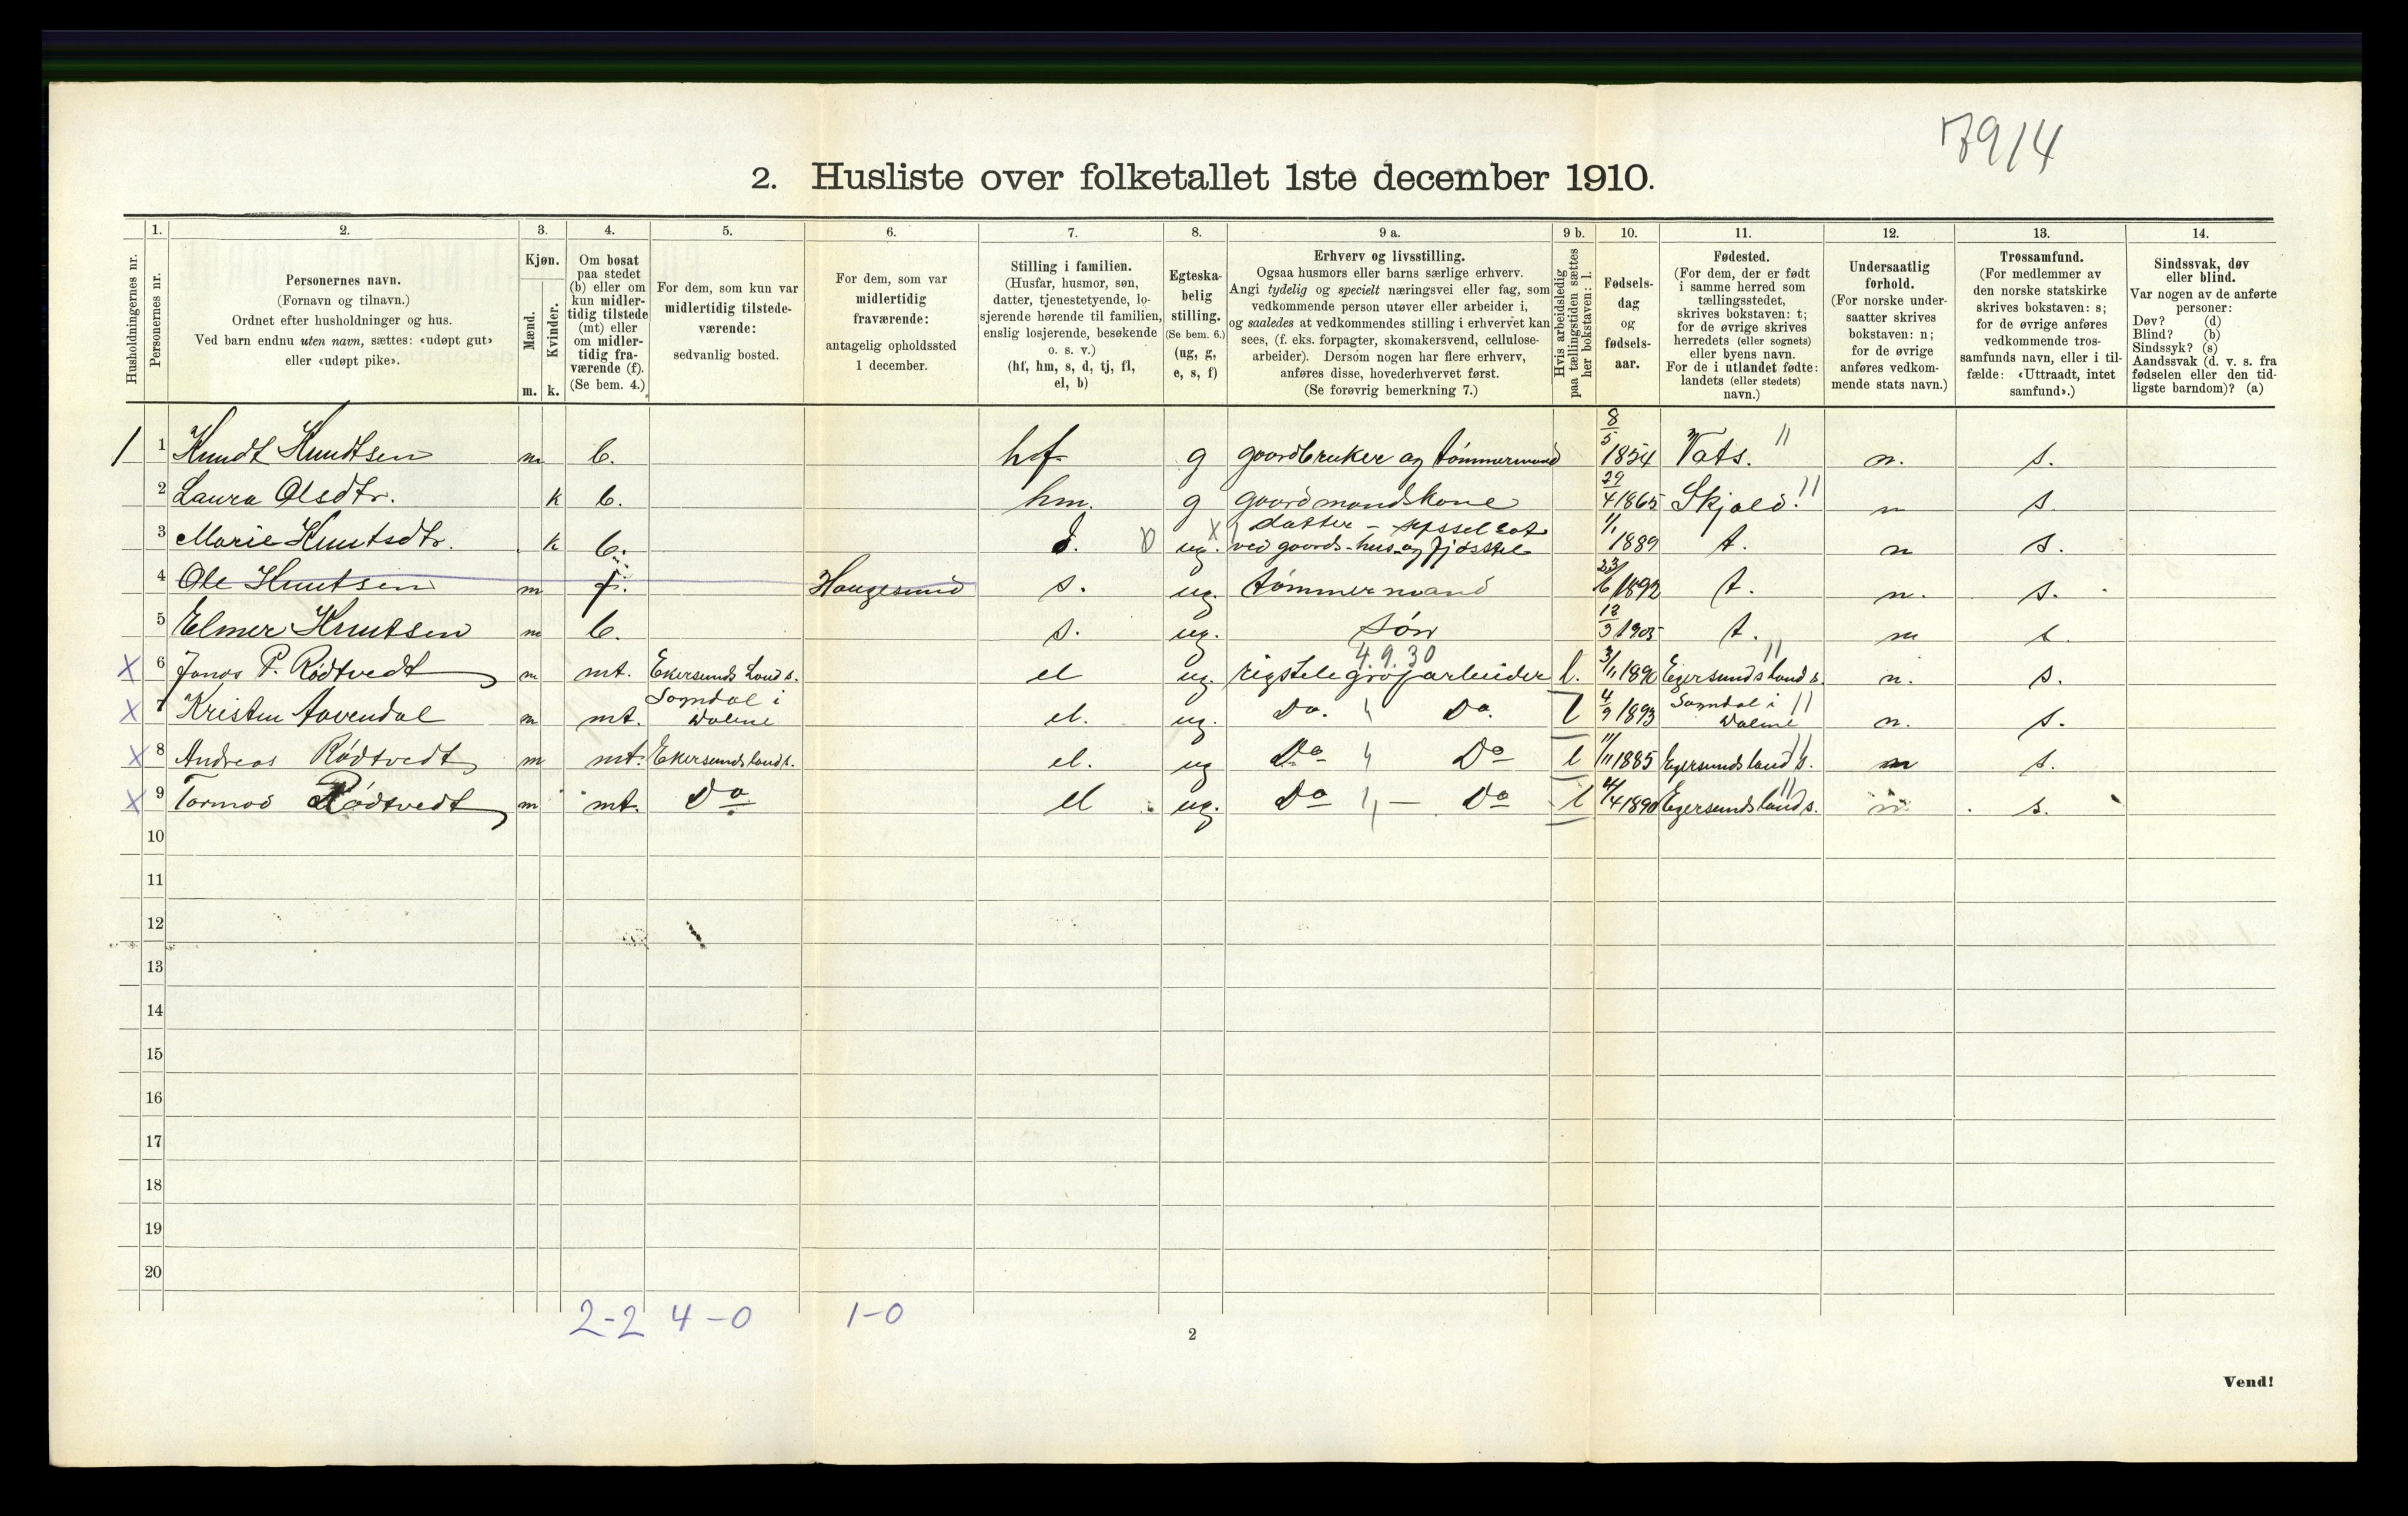 7914
2. Husliste over folketallet 1ste december 1910.
1. 2. 3. 4. 5. 6. 7. 8. 9 a. 9 b. 10. 11. 12. 13. 14.
Husholdningernes nr.
Personernes nr.
Personernes navn.
(Fornavn og tilnavn.)
Ordnet efter husholdninger og hus.
Ved barn endnu uten navn, sættes: «udøpt gut»
eller «udøpt pike».
Kjøn.
Mænd.
Kvinder.
m. k.
Om bosat
paa stedet
(b) eller om
kun midler-
tidig tilstede
(mt) eller
om midler-
tidig fra-
værende (f).
(Se bem. 4.)
For dem, som kun var
midlertidig tilstede-
værende:
sedvanlig bosted.
For dem, som var
midlertidig
fraværende:
antagelig opholdssted
1 december.
Stilling i familien.
(Husfar, husmor, søn,
datter, tjenestetyende, lo-
sjerende hørende til familien,
enslig losjerende, besøkende
o. s. v.)
(hf, hm, s, d, tj, fl,
el, b)
Egteska-
belig
stilling.
(Se bem. 6.)
(ug, g,
e, s, f)
Erhverv og livsstilling.
Ogsaa husmors eller barns særlige erhverv.
Angi tydelig og specielt næringsvei eller fag, som
vedkommende person utøver eller arbeider i,
og saaledes at vedkommendes stilling i erhvervet kan
sees, (f. eks. forpagter, skomakersvend, cellulose-
arbeider). Dersom nogen har flere erhverv,
anføres disse, hovederhvervet først.
(Se forøvrig bemerkning 7.)
Hvis arbeidsledig
paa tællingstiden sættes
her bokstaven: l.
Fødsels-
dag
og
fødsels-
aar.
Fødested.
(For dem, der er født
i samme herred som
tællingsstedet,
skrives bokstaven: t;
for de øvrige skrives
herredets (eller sognets)
eller byens navn.
For de i utlandet fødte:
landets (eller stedets)
navn.)
Undersaatlig
forhold.
(For norske under-
saatter skrives
bokstaven: n;
for de øvrige
anføres vedkom-
mende stats navn.)
Trossamfund.
(For medlemmer av
den norske statskirke
skrives bokstaven: s;
for de øvrige anføres
vedkommende tros-
samfunds navn, eller i til-
fælde: «Uttraadt, intet
samfund».)
Sindssvak, døv
eller blind.
Var nogen av de anførte
personer:
Døv? (d)
Blind? (b)
Sindssyk? (s)
Aandssvak (d. v. s. fra
fødselen eller den tid-
ligste barndom)? (a)
1 1 Knudt Knudtsen m b. hf. g gaardbruker og tømmermand 8/5 1854 Vats. " n. s.
2 Laura Olsdtr. k b. hm. g gaardmandskone 29/4 1865 Skjold. " n s.
3 Marie Knutsdtr. k b. d. ug. datter - sysselsat
ved gaards-hus-og fjøsstel 1/1 1889 t. n s.
4 Ole Knutsen m f. Haugesund s. ug. tømmermand 23/6 1892 t. n. s.
5 Elmer Knutsen m b. s. ug. søn 1905 t. n s.
4.9.30
X 6 Jonas P. Rødtvedt m mt. Ekersunds Lands. el ug. rigstelegrafarbeider l. 3/11 1890 Egersunds lands. " n. s.
X 7 Kristen Aavendal m mt. Sogndal i
Dalene el. ug. Do. " Do. l 4/9 1893 Sogndal i
Dalene " n. s.
X 8 Andreas Rødtvedt m mt. Ekersunds lands. el. ug Do " Do l 11/11 1885 Egersunds lands. " n s.
X 9 Tormod Rødtvedt m mt. Do el ug. Do " — Do l 1890 Egersunds lands. " n s.
10
11
12
13
14
15
16
17
18
19
20
2-2 4-0 1-0
2
Vend!